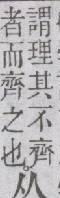 謂理其不齊
者而齊之也。从